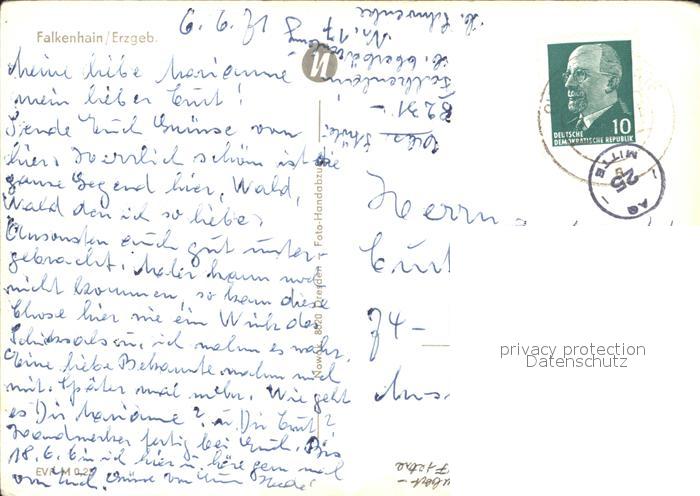 Falkenhain/Erzgeb.
9.6.71
Meine liebe Marianne
mein lieber Curt!
Sende Euch Grüsse von
hier. Herrlich schön ist die
ganze Gegend hier, Wald,
Wald den ich so liebe.
Ansonsten auch gut unter-
gebracht. Maler kann noch
nicht kommen, so kam diese
Chose hier wie ein Wink des
Schicksals u. ich nahm es wahr.
Eine liebe Bekannte nahm mich
mit. Später mal mehr. Wie geht
es Dir Marianne? u. Dir Curt?
Handwerker fertig bei Euch. Bis
18.6. bin ich hier u. höre gern mal
von Euch. Grüsse von
EVP M 0,25
Nowak, 8020 Dresden - Foto-Handabzug
8231 -
Falkenhain
Nr. 17
DEUTSCHE
DEMOKRATISCHE REPUBLIK
10
MITTE
25
Herrn
Curt
74-
privacy protection
Datenschutz